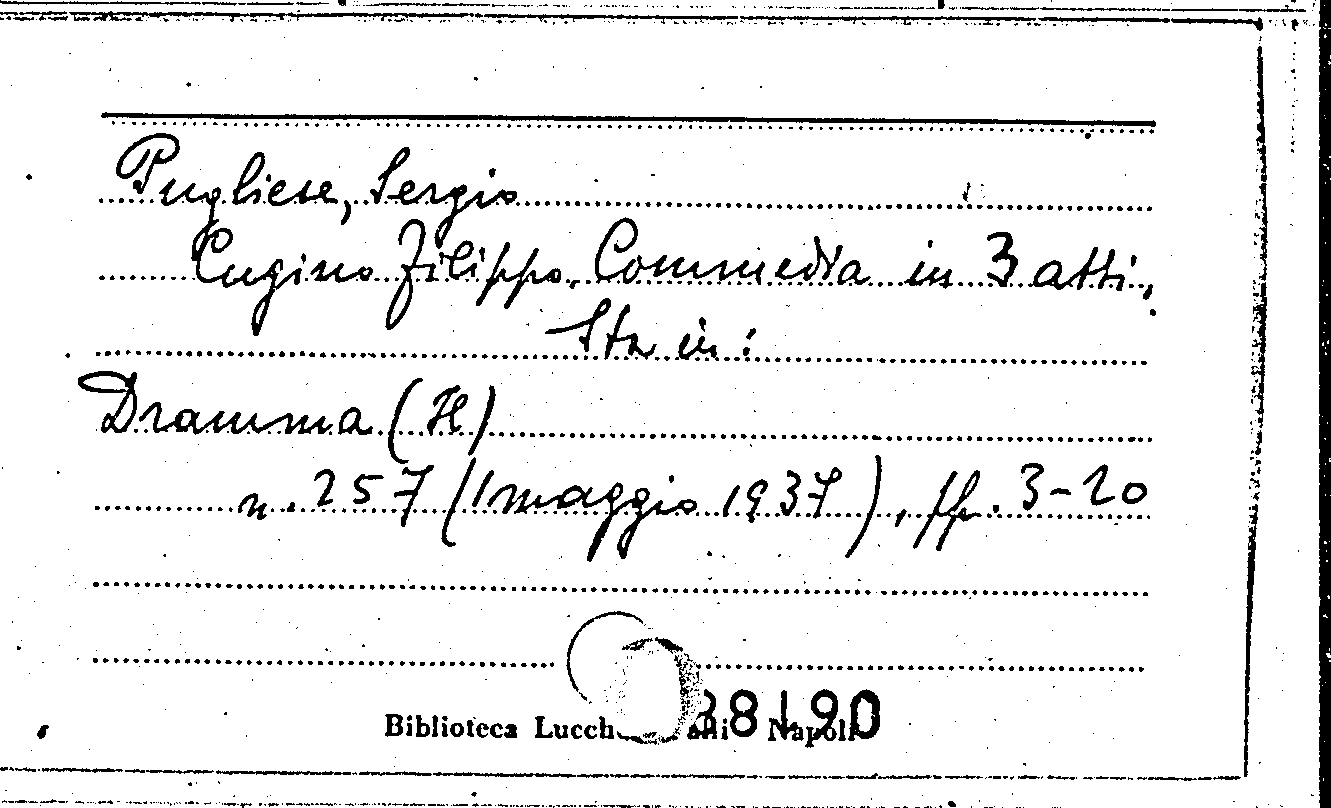 Pugliese, Sergio
Cugino Filippo. Commedia in 3 atti.
Sta in:
Dramma (Il)
n. 257 (1 maggio 1937), pp. 3-20
38190
Biblioteca Napoli